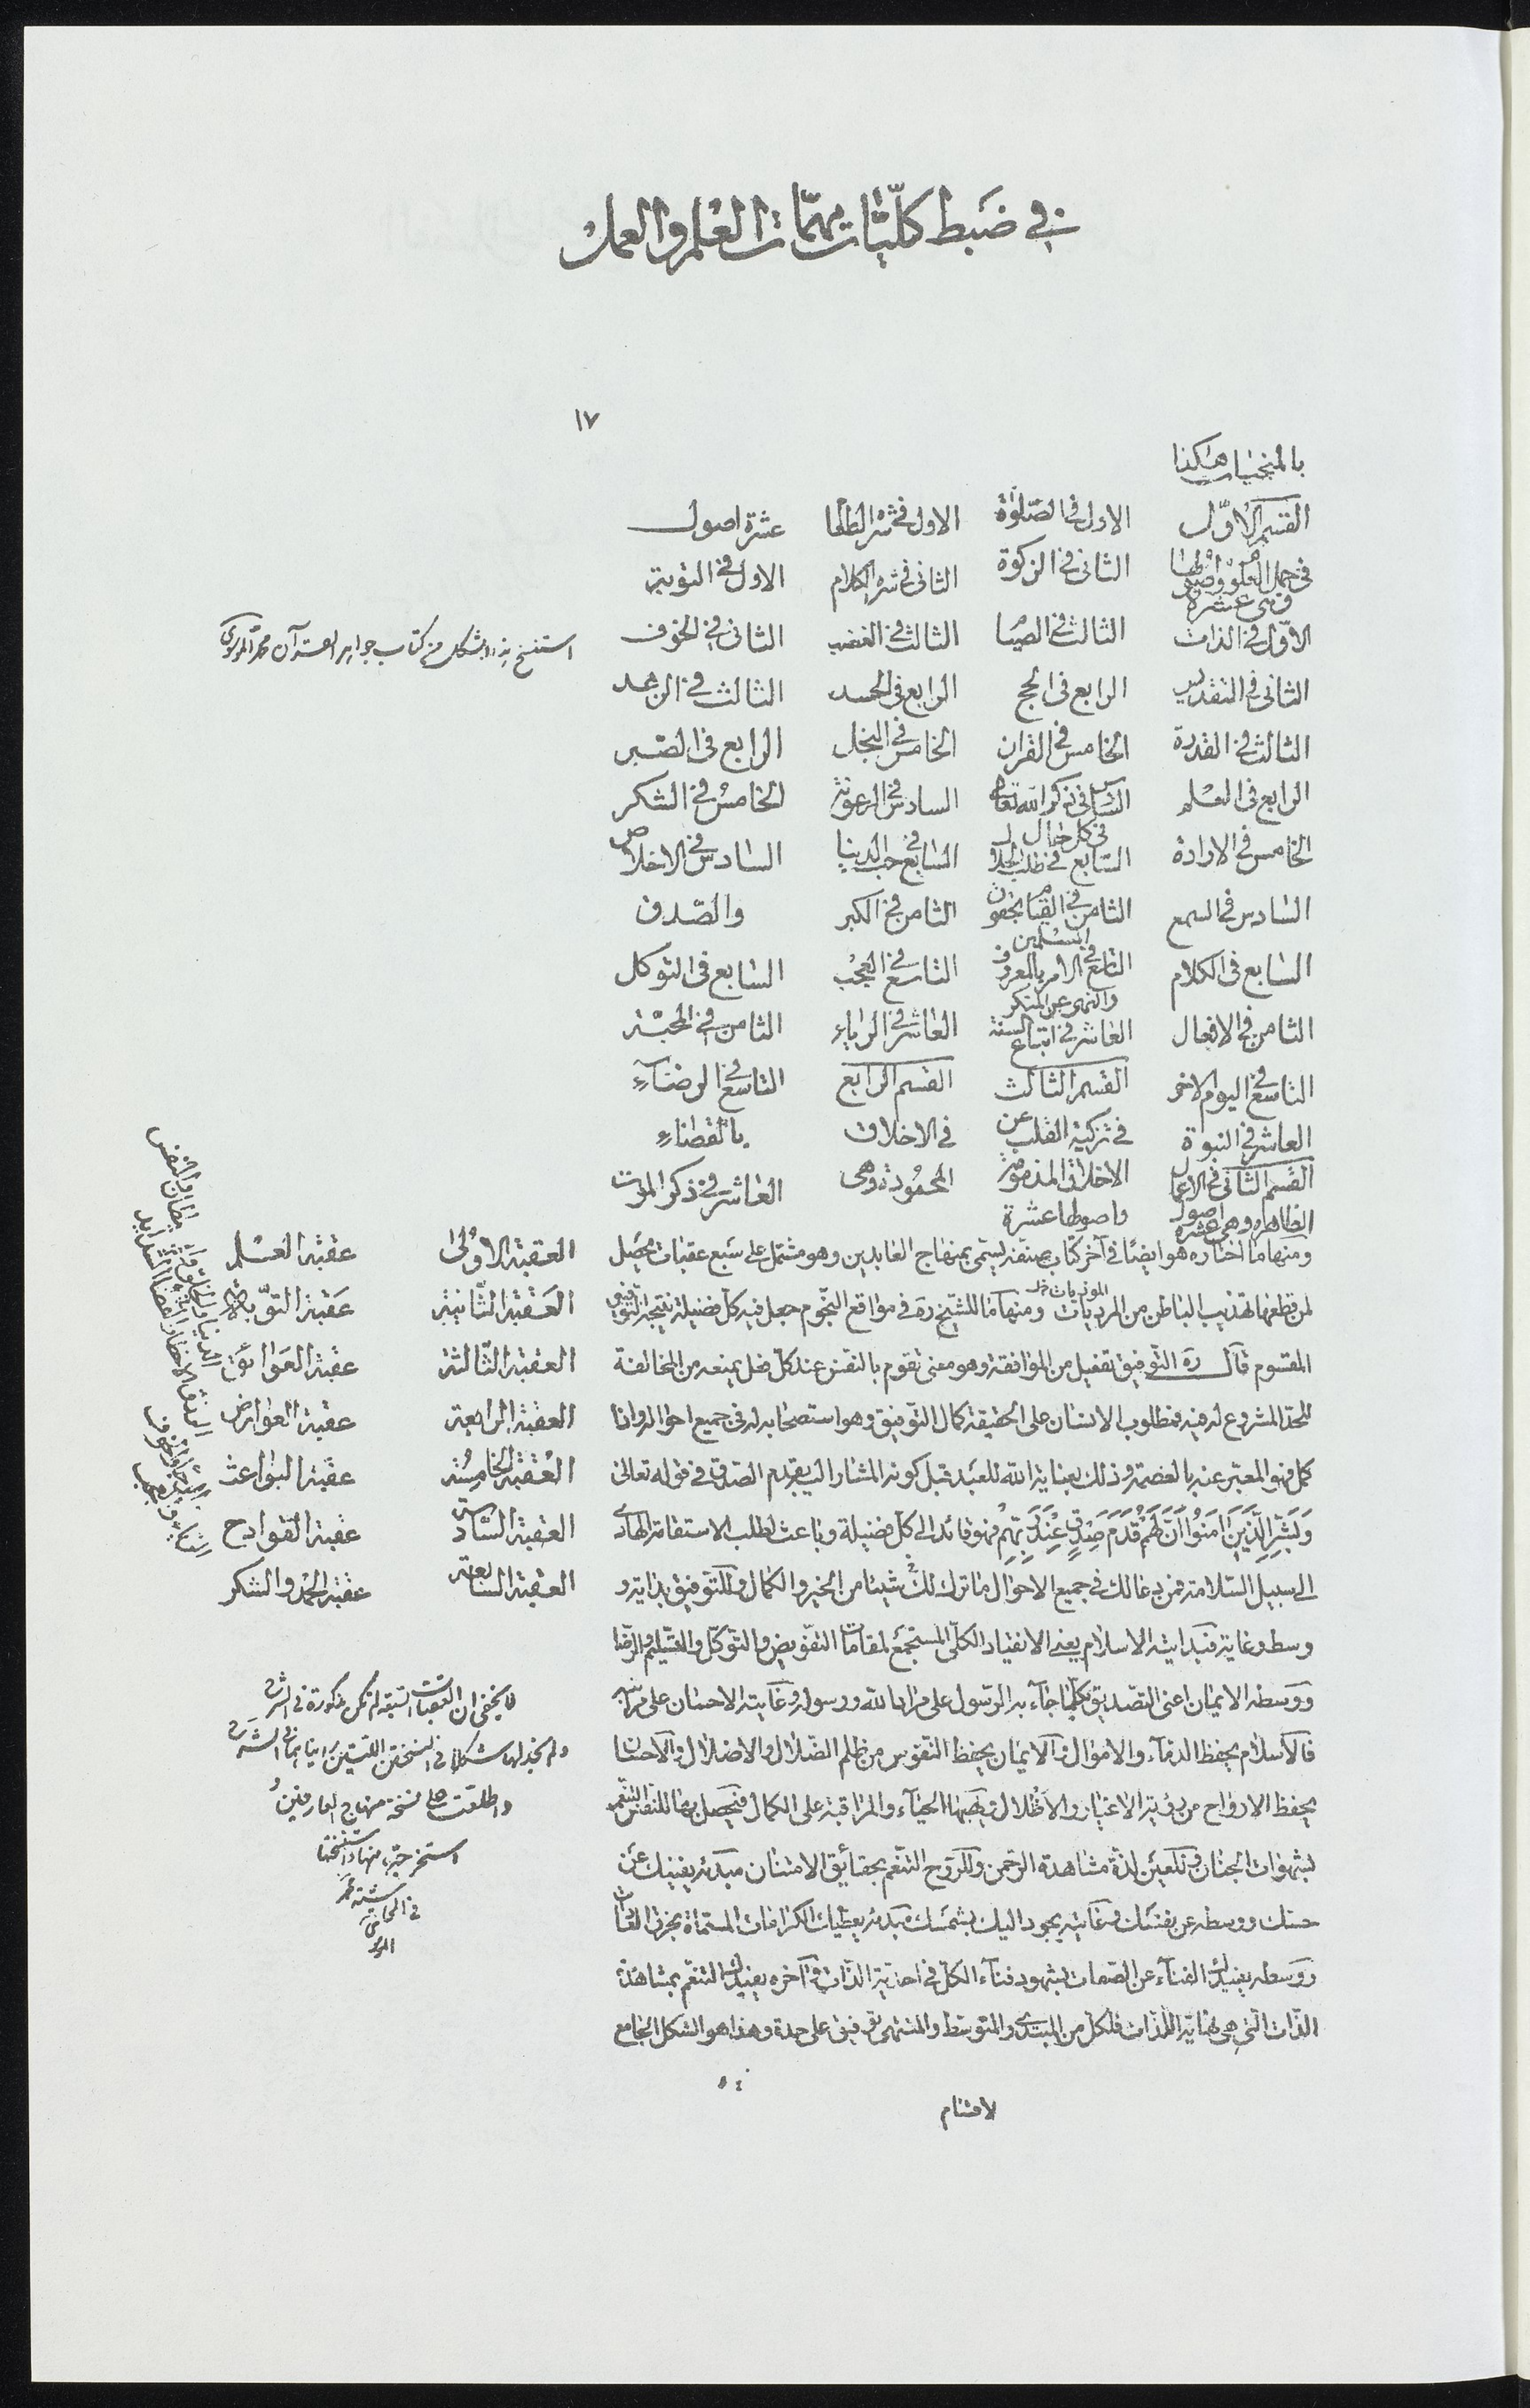 في ضبط كلّيّات مهمّات العلم والعمل
١٧
بالمنجيات هكذا
القسم الاوّل الاول في الصّلوة الاول في شره الطعام عشرة اصول
في جمل العلوم واصولها الثاني في الزكوة الثاني في شره الكلام الاول في التوبة
وهي عشرة
الاوّل في الذات الثالث في الصيام الثالث في الغضب الثاني في الخوف
الثاني في التقديس الرابع في الحج الرابع في الحسد الثالث في الزهد
الثالث في القدرة الخامس في القران الخامس في البخل الرابع في الصّبر
الرابع في العلم السادس في ذكر الله تعالى السادس في الرعونة الخامس في الشكر
في كل حال
الخامس في الارادة السابع في طلب الحلال السابع في حب الدنيا السادس في الاخلاص
السادس في السمع الثامن في القيام بحقوق الثامن في الكبر والصّدق
المسلمين
السابع في الكلام التاسع في الامر بالمعروف التاسع في العجب السابع في التوكل
والنهي عن المنكر
الثامن في الافعال العاشر في اتباع السنة العاشر في الرياء الثامن في المحبّة
التاسع في اليوم الاخر القسم الثالث القسم الرابع التاسع في الرضاء
العاشر في النبوة في تزكية القلب عن في الاخلاق بالقضاء
القسم الثاني في الاعمال الاخلاق المذمومة المحمودة وهي العاشر في ذكر الموت
الظاهرة وهي عشرة اصول واصولها عشرة
ومنها ما اختاره هو ايضا في آخر كتاب صنفه يسمى بمنهاج العابدين وهو مشتمل على سبع عقبات يحصل
لمن قطعها تهذيب الباطن من المرديات ومنها ما للشيخ ره في مواقع النجوم جعل فيه كل فضيلة نتيجة التوفيق
المقسوم قال ره التوفيق تفعيل من الموافقة وهو معنى تقوم بالنفس عند كل فعل يمنعه من المخالفة
للحد المشروع له فيه فمطلوب الانسان على الحقيقة كمال التوفيق وهو استصحابه له في جميع احواله واذا
كمل فهو المعبر عنه بالعصمة وذلك بعناية الله للعبد قبل كونه المشار اليه بقدم الصدق في قوله تعالى
وَبَشِّرِ الَّذينَ آمَنُوا أَنَّ لَهُمْ قَدَمَ صِدْقٍ عِنْدَ رَبِّهِمْ فهو قائد الى كل فضيلة وباعث لطلب الاستقامة الهادي
الى سبيل السّلامة فمن دعا لك في جميع الاحوال ما ترك لك شيئا من الخير والكمال وللتوفيق بداية و
وسط وغاية فبدايته الاسلام يعني الانقياد الكلّي المستجمع لمقامات التفويض والتوكل والتسليم والرضا
ووسطه الايمان اعنى التصديق بكل ما جاء به الرسول على مراد الله ورسوله وغايته الاحسان على مراتبه
فالاسلام يحفظ الدماء والاموال والايمان يحفظ النفوس من ظلم الضلال والاضلال والاحسان
يحفظ الارواح من رؤية الاغيار والاظلال ويهبها الحياء والمراقبة على الكمال فيحصل بها للنفس التنعم
بشهوات الجنان وللعين لذّة مشاهدة الرحمن وللروح التنعم بحقائق الامتنان مبدئه يفنيك عن
حسك ووسطه عن نفسك وغايته يجود اليك بشمسك مبدئه يعطيك الكرامات المسماة بخرق العادات
ووسطه يفيدك الفناء عن الصفات بشهود فناء الكل في احدية الذّات وآخره يفيدك التنعم بمشاهدة
الذّات التي هي نهاية اللذات فلكل من المبتدي والمتوسط والمنتهى توفيق على حدة وهذا هو الشكل الجامع
لاقسام
استنسخ هذا الشكل من كتاب جواهر القرآن محمد الموسوي
العقبة الاولى عقبة العلم
العقبة الثّانية عقبة التوبة
العقبة الثّالثة عقبة العوائق
العقبة الرابعة عقبة العوارض
العقبة الخامسة عقبة البواعث
العقبة السّادسة عقبة القوادح
العقبة السّابعة عقبة الحمد والشكر
لا يخفى ان العقبات السبعة لم تكن مذكورة في الشرح
ولم نجد لها شكلا في النسختين اللتين راينا هما في الشرح
واطلعت على نسخة منهاج العارفين
استخرجته منها
في الحاشية